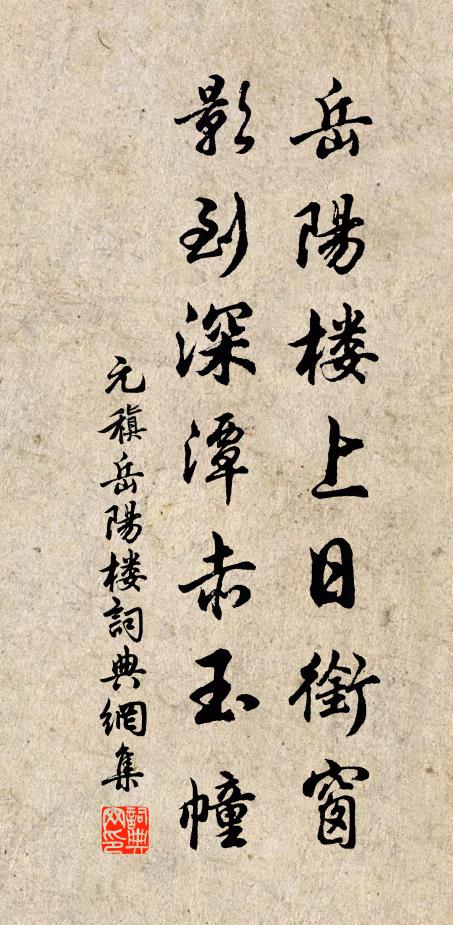 岳陽楼上日銜窗
影到深潭赤玉幢
元稹岳陽楼詞典網集
詞典
网印